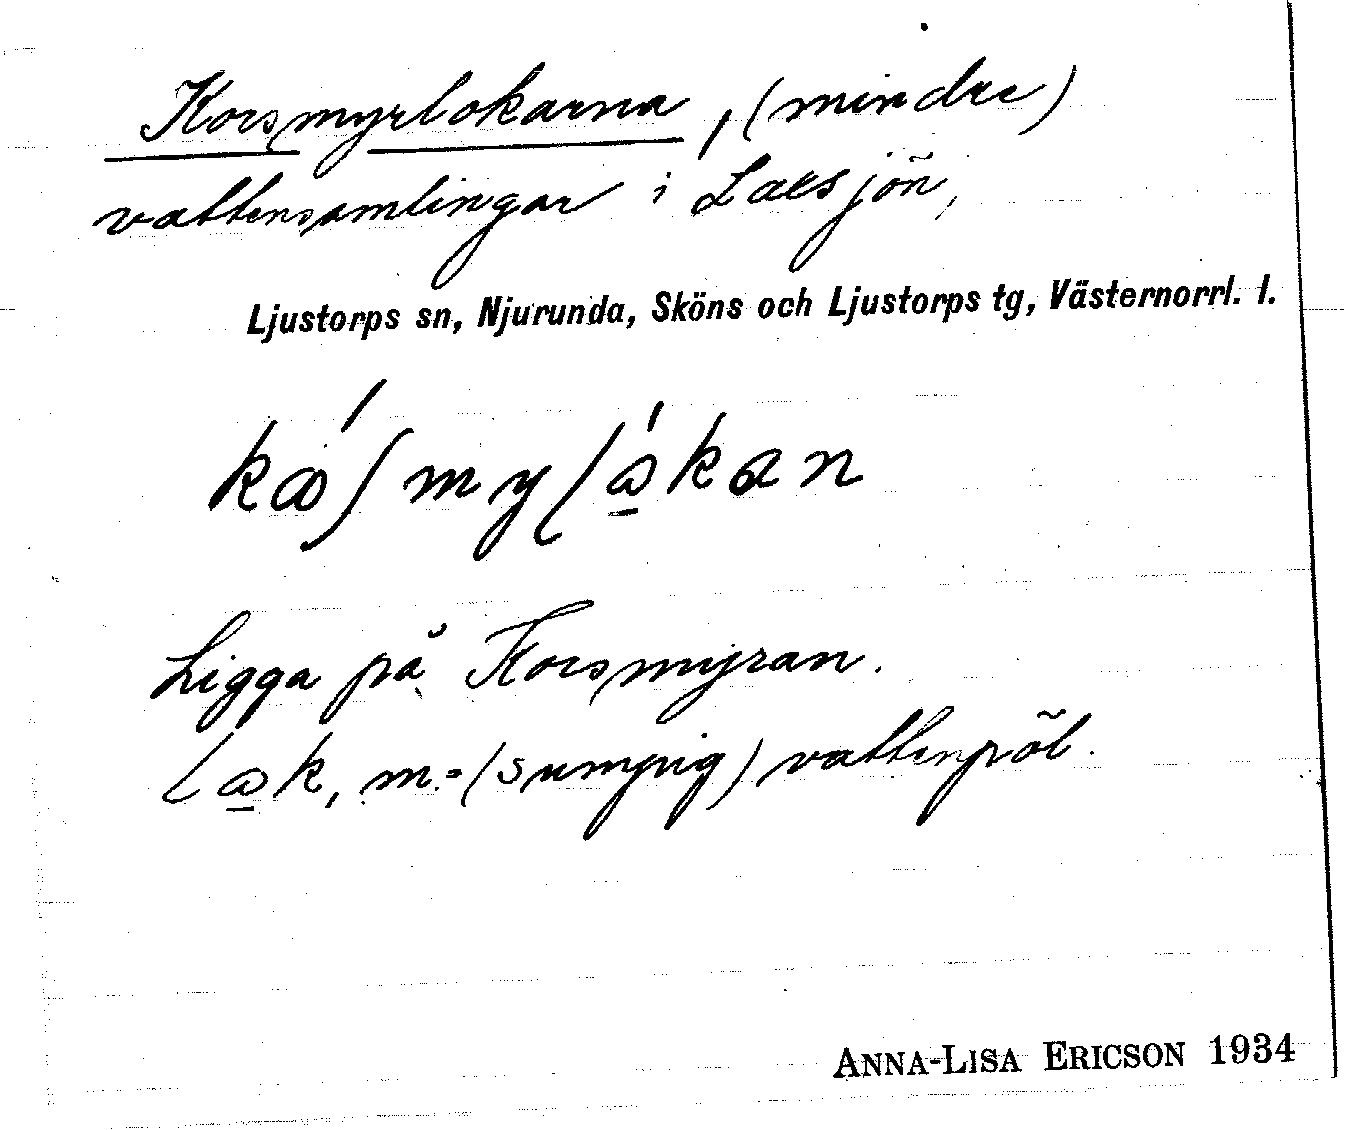 Korsmyrlokarna, (mindre)
vattensamlingar i Laxsjön,
Ljustorps sn, Njurunda, Sköns och Ljustorps tg, Västernorrl. l.
Ligga på Korsmyran.
m. = (sumpig) vattenpöl.
ANNA-LISA ERICSON 1934